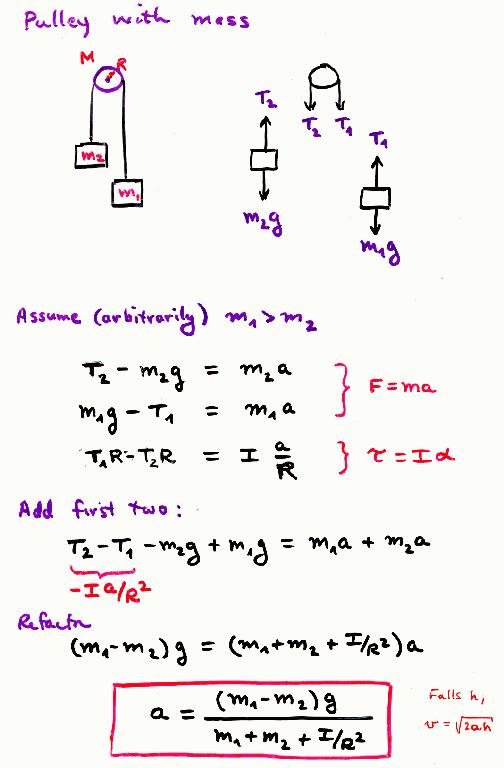 Pulley with mass
M R
m₂
m₁
T₂
T₂ T₁
T₁
m₂g
m₁g
Assume (arbitrarily) m₁ > m₂
T₂ - m₂g = m₂a
F = ma
m₁g - T₁ = m₁a
T₁R - T₂R = I a/R } τ = Iα
Add first two:
T₂ - T₁ - m₂g + m₁g = m₁a + m₂a
-I a/R²
Refactor
(m₁-m₂)g = (m₁+m₂ + I/R²)a
a = (m₁-m₂)g / m₁+m₂ + I/R²
Falls h,
v = √2ah